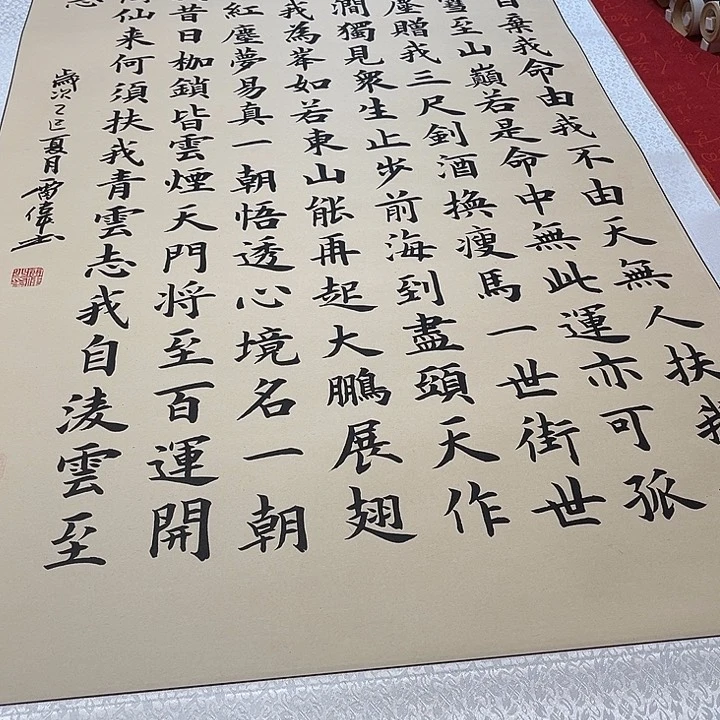 棄我命由我不由天無人扶我
至山巔若是命中無此運亦可孤
塵贈我三尺劍酒換瘦馬一世街世
澗獨見衆生止步前海到盡頭天作
我為峯如若東山能再起大鵬展翅
紅塵夢易真一朝悟透心境名一朝
昔日枷鎖皆雲煙天門将至百運開
仙来何須扶我青雲志我自淩雲至
歲次乙巳夏月雷偉書